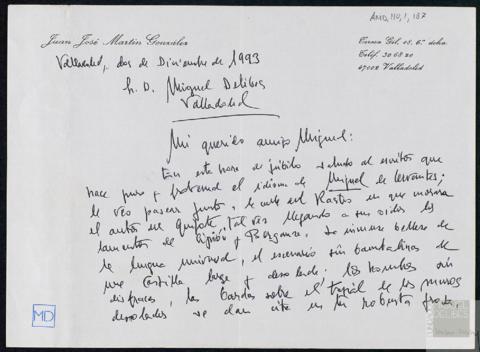 AMD, 110, 1, 187
Juan José Martín González
Teresa Gil, 18, 6.º dcha.
Teléf. 30 68 20
47002 Valladolid
Valladolid, dos de Diciembre de 1993
Sr. D. Miguel Delibes
Valladolid
Mi querido amigo Miguel:
En esta hora de júbilo saludo al escritor que
hace puro y fraternal el idioma de Miguel de Cervantes;
le veo pasear junto a la calle del Rastro en que morara
el autor del Quijote, tal vez llegando a sus oídos los
lamentos de Cipión y Berganza. La inmensa belleza de
la lengua universal, el escenario sin bambalinas de
una Castilla larga y desolada. los hombres sin
disfraces, las bardas sobre el tapial de los muros
desolados se dan cita en tu robusta prosa
MD
MIGUEL
DELIBES